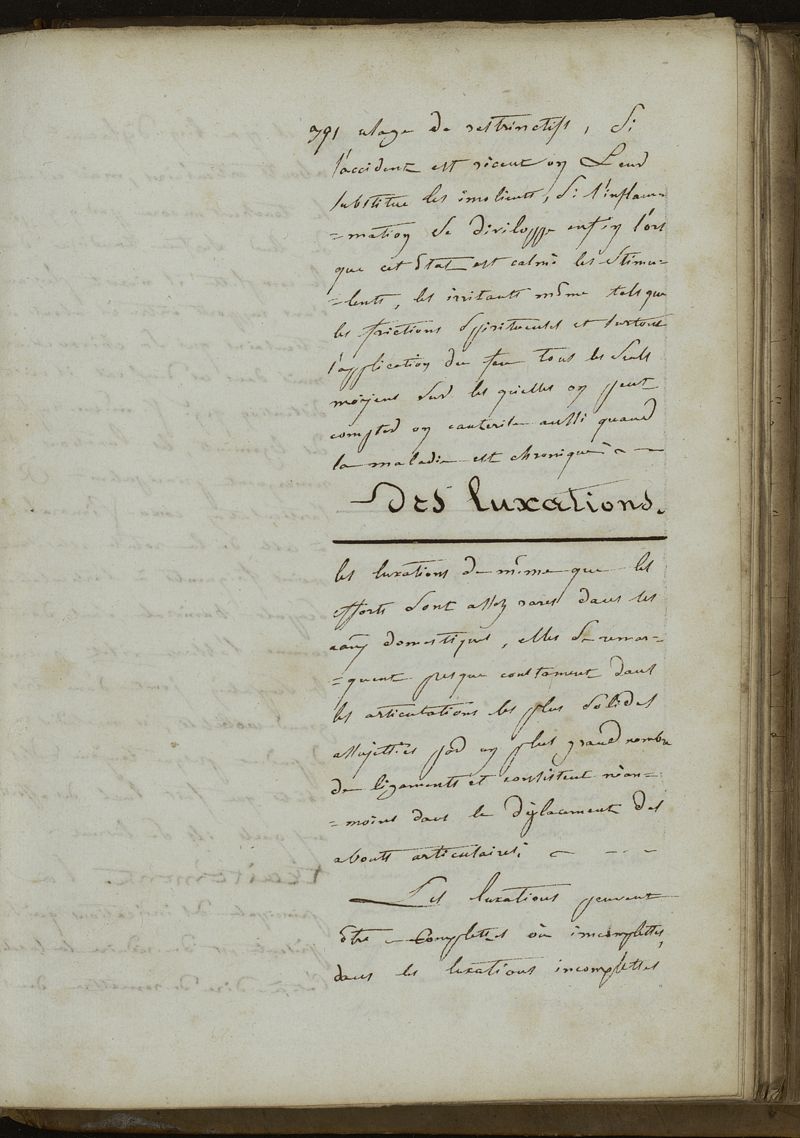 391 usage de restrinctifs, Si
l'accident est récent on Leur
substitue les imolients, Si l'inflam-
=mation Se diviloppe enfin lors
que cet Etat est calmé les Stimu-
=lents, les irritants même tels que
les frictions Spiritueuses et surtout
l'application du feu tous les Seuls
moyens Sur les quelles on peut
compter on cauterise aussi quand
la maladie est chronique
Des luxations.
les luxations de même que les
efforts Sont assez rares dans les
domestiques, elles Se remar-
=quent presque constament dans
les articulations les plus Solides
assujetties par un plus grand nombre
de ligaments et consistent néan-
=moins dans le déplacement des
abouts articulaires;
Les luxations peuvent
être Complettes où incomplettes,
dans les luxations incomplettes